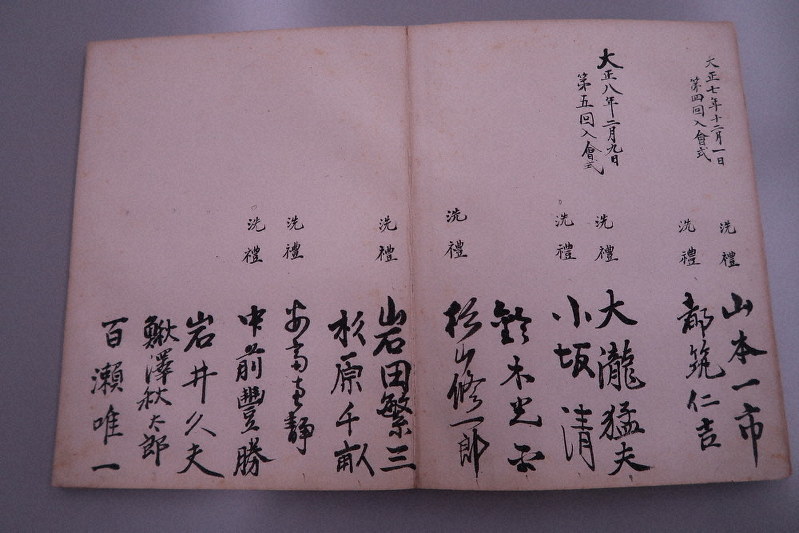 大正七年十二月一日
第四回入會式
洗禮 山本一市
洗禮 都筑仁吉
大正八年二月九日
第五回入會式
洗禮 大瀧猛夫
洗禮 小坂清
鈴木光正
洗禮 松山修一郎
洗禮 岩田繁三
杉原千畝
洗禮 静
洗禮 中前豐勝
岩井久夫
鰍澤秋太郎
百瀬唯一